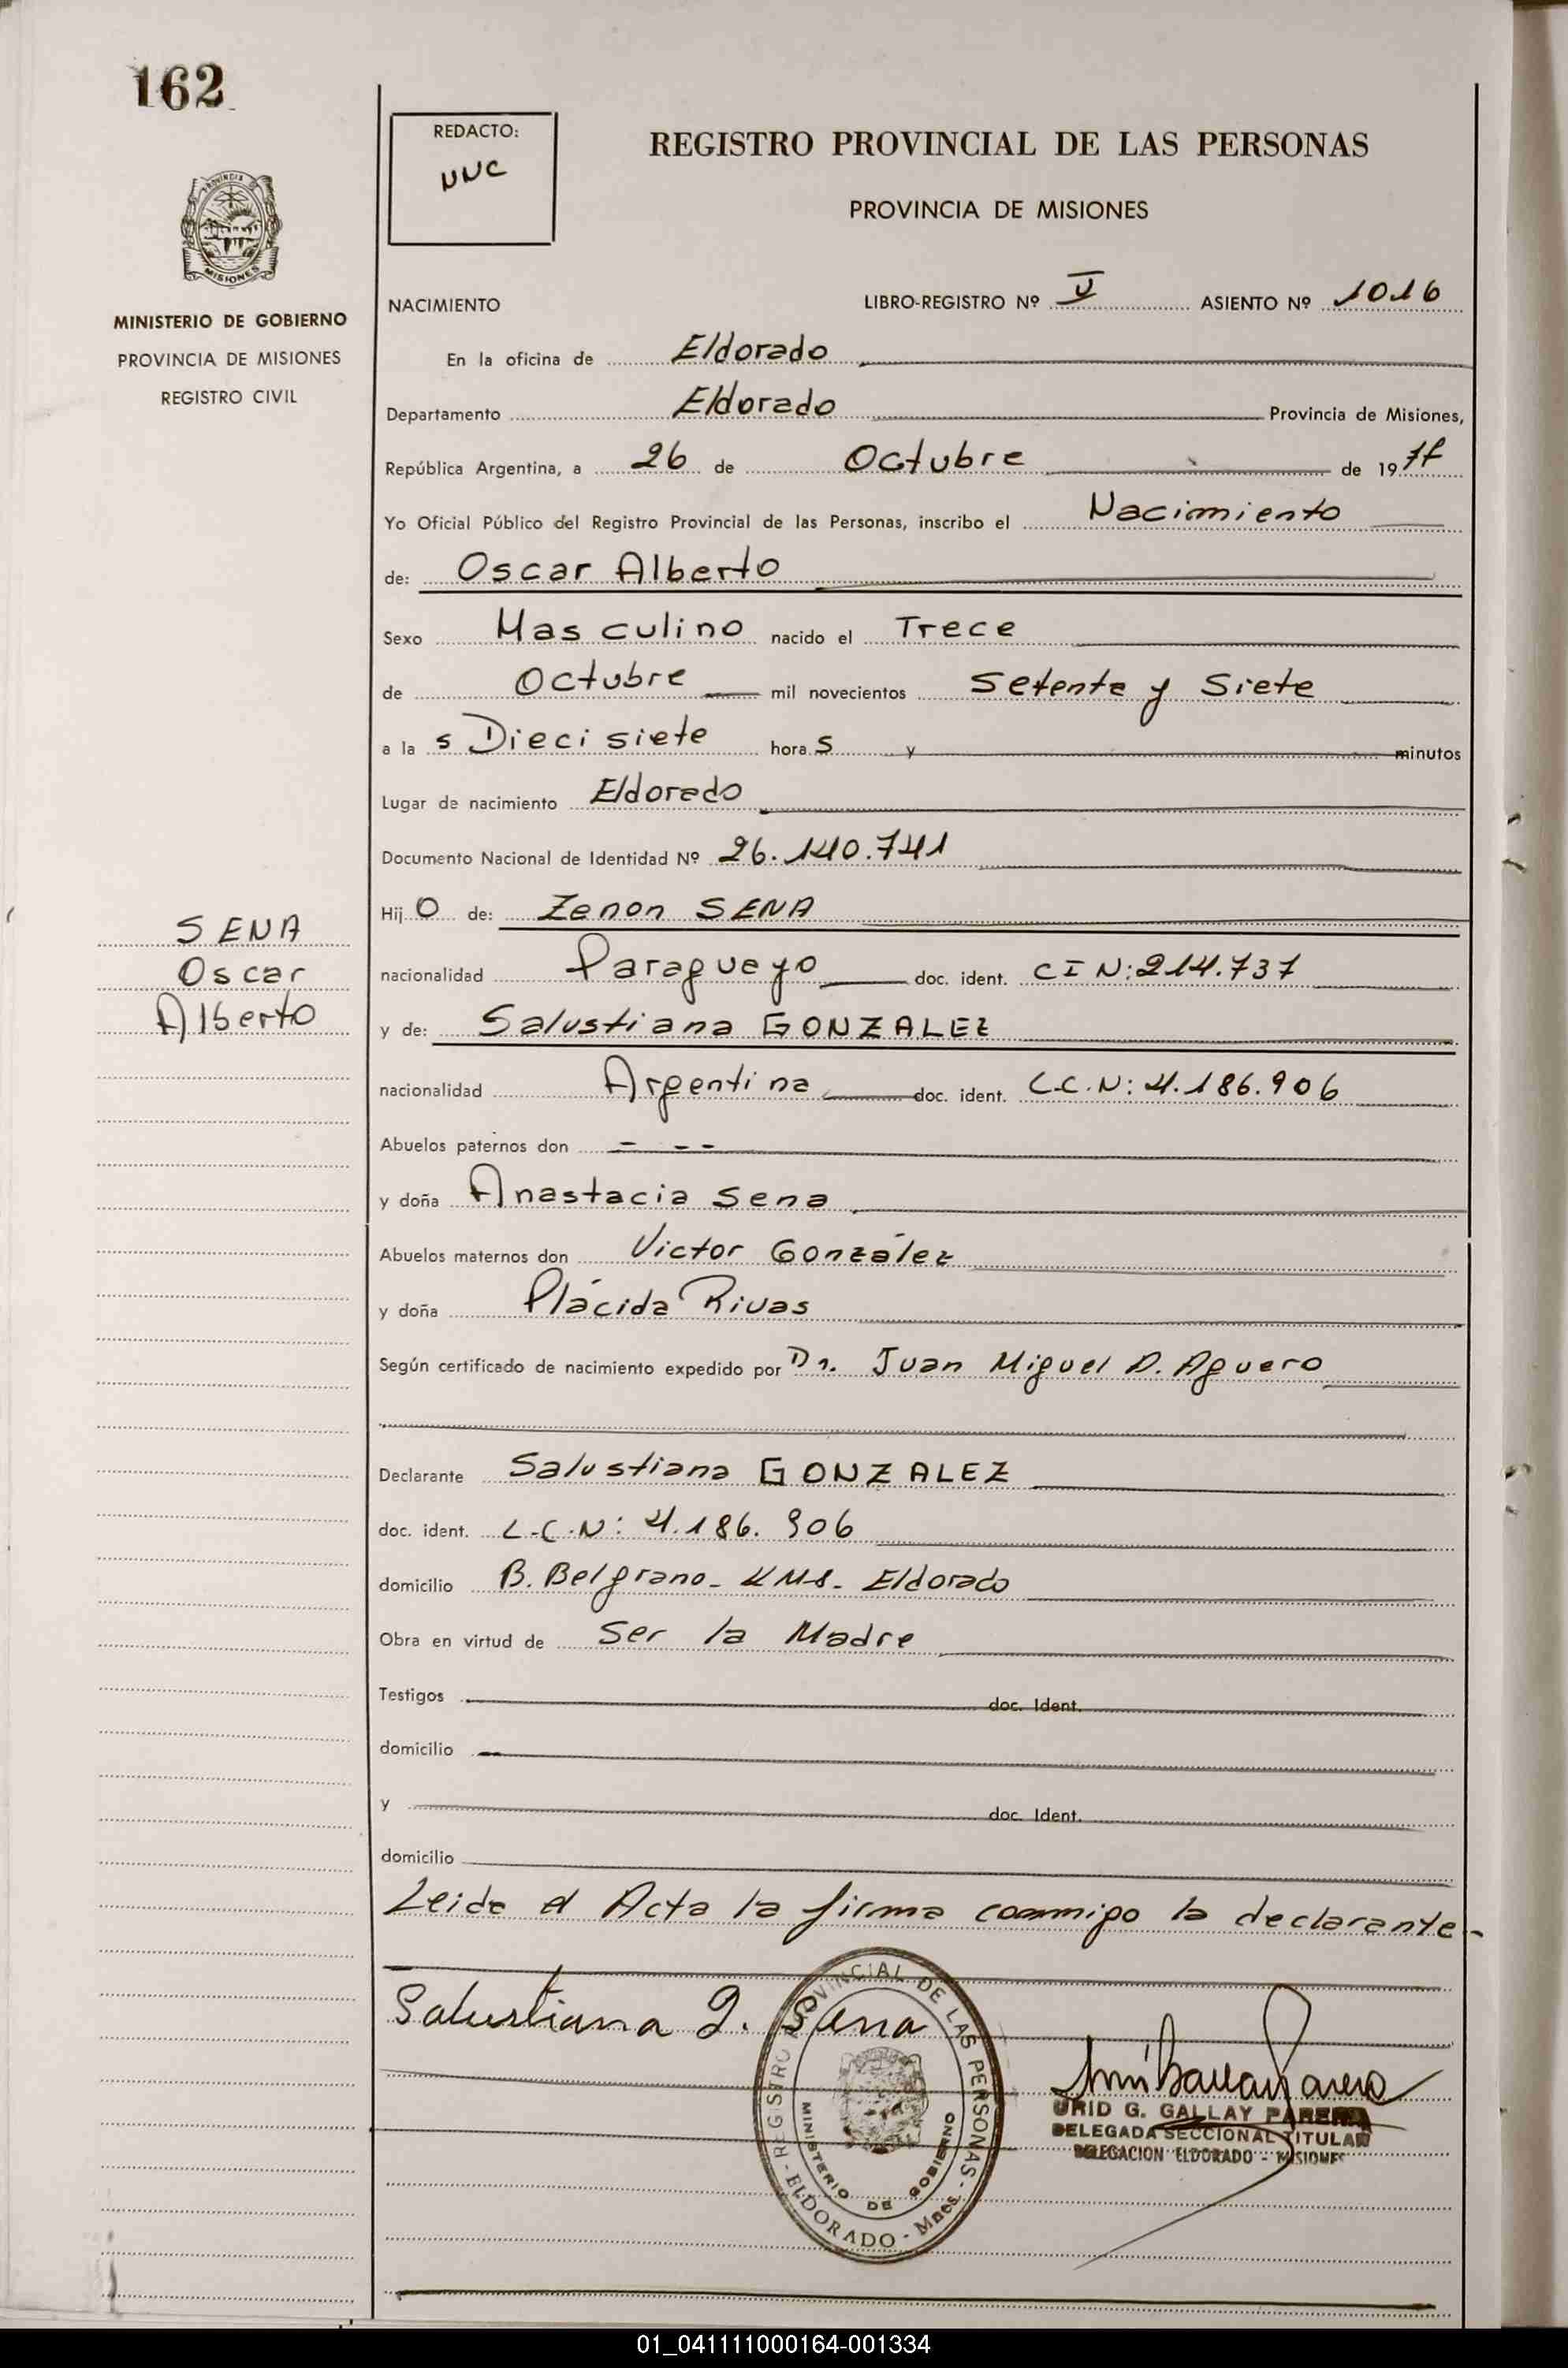 162
REDACTO:
NNC
REGISTRO PROVINCIAL DE LAS PERSONAS
PROVINCIA DE MISIONES
PROVINCIA
MISIONES
MINISTERIO DE GOBIERNO
PROVINCIA DE MISIONES
REGISTRO CIVIL
NACIMIENTO LIBRO-REGISTRO Nº V ASIENTO Nº 1016
En la oficina de Eldorado
Departamento Eldorado Provincia de Misiones,
República Argentina, a 26 de Octubre de 1977
Yo Oficial Público del Registro Provincial de las Personas, inscribo el Nacimiento
de: Oscar Alberto
Sexo Masculino nacido el Trece
de Octubre mil novecientos Setenta y Siete
a las Diecisiete horas y minutos
Lugar de nacimiento Eldorado
Documento Nacional de Identidad Nº 26.140.741
Hijo de: Zenon SENA
nacionalidad Paraguayo doc. ident. CI N: 214.737
y de: Salustiana GONZALEZ
nacionalidad Argentina doc. ident. L.C.N: 4.186.906
Abuelos paternos don - - -
y doña Anastacia Sena
Abuelos maternos don Victor González
y doña Plácida Rivas
Según certificado de nacimiento expedido por Dr. Juan Miguel D. Aguero
Declarante Salustiana GONZALEZ
doc. ident. L.C.N: 4.186.906
domicilio B. Belgrano - Eldorado
Obra en virtud de Ser la Madre
Testigos doc. Ident.
domicilio
y doc. Ident.
domicilio
Leida el Acta la firma conmigo la declarante-
SENA
Oscar
Alberto
Salustiana G. Sena
REGISTRO PROVINCIAL DE LAS PERSONAS - ELDORADO - Mnes. -
MINISTERIO DE GOBIERNO
URID G. GALLAY PARERA
DELEGADA SECCIONAL TITULAR
DELEGACION ELDORADO - MISIONES
01_041111000164-001334